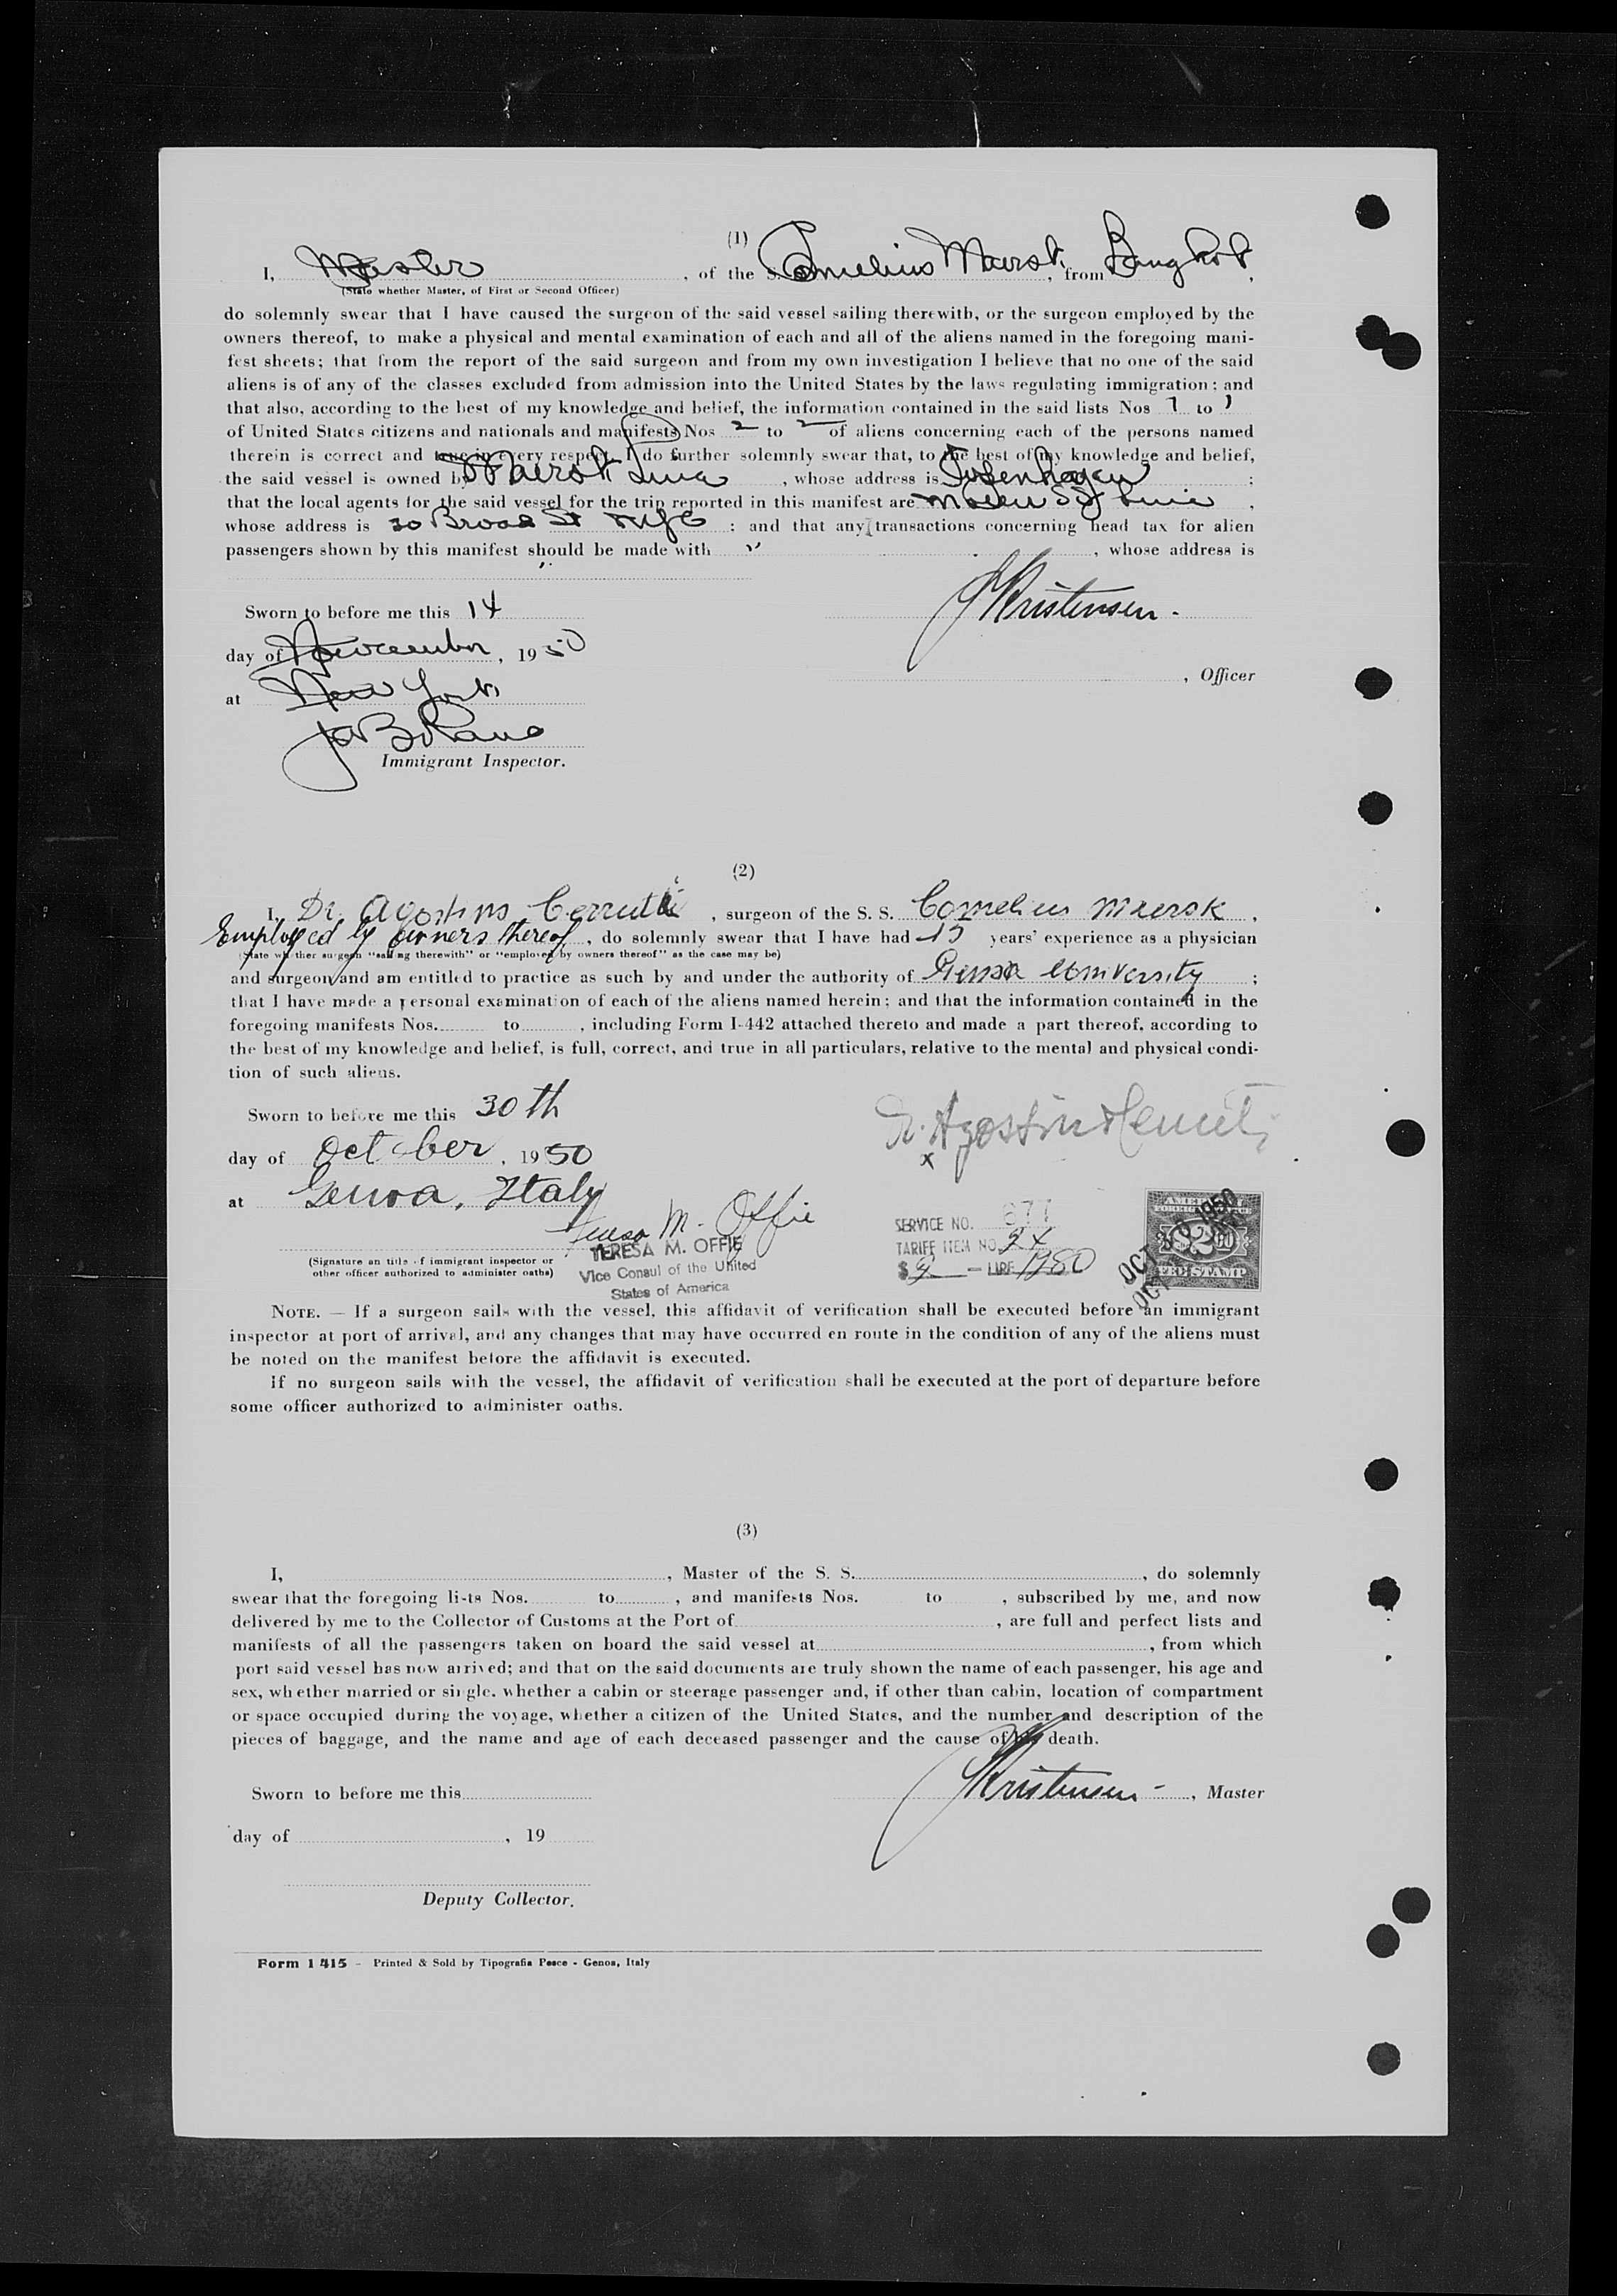 (1)
I, Master, of the S. S. Cornelius Maersk, from Bangkok,
(State whether Master, of First or Second Officer)
do solemnly swear that I have caused the surgeon of the said vessel sailing therewith, or the surgeon employed by the
owners thereof, to make a physical and mental examination of each and all of the aliens named in the foregoing mani-
fest sheets; that from the report of the said surgeon and from my own investigation I believe that no one of the said
aliens is of any of the classes excluded from admission into the United States by the laws regulating immigration; and
that also, according to the best of my knowledge and belief, the information contained in the said lists Nos 1 to 1
of United States citizens and nationals and manifests Nos 2 to 2 of aliens concerning each of the persons named
therein is correct and true in every respect. I do further solemnly swear that, to the best of my knowledge and belief,
the said vessel is owned by Maersk Line, whose address is Copenhagen;
that the local agents for the said vessel for the trip reported in this manifest are
whose address is 30 Broad St NYC: and that any transactions concerning head tax for alien
passengers shown by this manifest should be made with ", whose address is
"
Sworn to before me this 14
JKristensen.
day of November, 1950
, Officer
at New York
Immigrant Inspector.
(2)
I, Dr. Agostino Cerruti, surgeon of the S. S. Cornelius Maersk,
Employed by owners thereof, do solemnly swear that I have had 15 years' experience as a physician
(State whether surgeon "sailing therewith" or "employed by owners thereof" as the case may be)
and surgeon and am entitled to practice as such by and under the authority of Genoa University;
that I have made a personal examination of each of the aliens named herein; and that the information contained in the
foregoing manifests Nos. to , including Form I-442 attached thereto and made a part thereof, according to
the best of my knowledge and belief, is full, correct, and true in all particulars, relative to the mental and physical condi-
tion of such aliens.
Sworn to before me this 30th
Dr. Agostino Cerruti
x
day of October, 1950
at Genoa, Italy
Teresa M. Offie
TERESA M. OFFIE
Vice Consul of the United
States of America
(Signature an title of immigrant inspector or
other officer authorized to administer oaths)
SERVICE NO. 677
TARIFF ITEM NO. 24
$2 — LIRE 1250
AMERICAN
FOREIGN SERVICE
$2.00
FEE STAMP
OCT 30 1950
OCT
NOTE. — If a surgeon sails with the vessel, this affidavit of verification shall be executed before an immigrant
inspector at port of arrival, and any changes that may have occurred en route in the condition of any of the aliens must
be noted on the manifest before the affidavit is executed.
If no surgeon sails with the vessel, the affidavit of verification shall be executed at the port of departure before
some officer authorized to administer oaths.
(3)
I, , Master of the S. S. , do solemnly
swear that the foregoing lists Nos. to , and manifests Nos. to , subscribed by me, and now
delivered by me to the Collector of Customs at the Port of , are full and perfect lists and
manifests of all the passengers taken on board the said vessel at , from which
port said vessel has now arrived; and that on the said documents are truly shown the name of each passenger, his age and
sex, whether married or single, whether a cabin or steerage passenger and, if other than cabin, location of compartment
or space occupied during the voyage, whether a citizen of the United States, and the number and description of the
pieces of baggage, and the name and age of each deceased passenger and the cause of his death.
Sworn to before me this
JKristensen, Master
day of , 19
Deputy Collector.
Form I 415 - Printed & Sold by Tipografia Pesce - Genoa, Italy